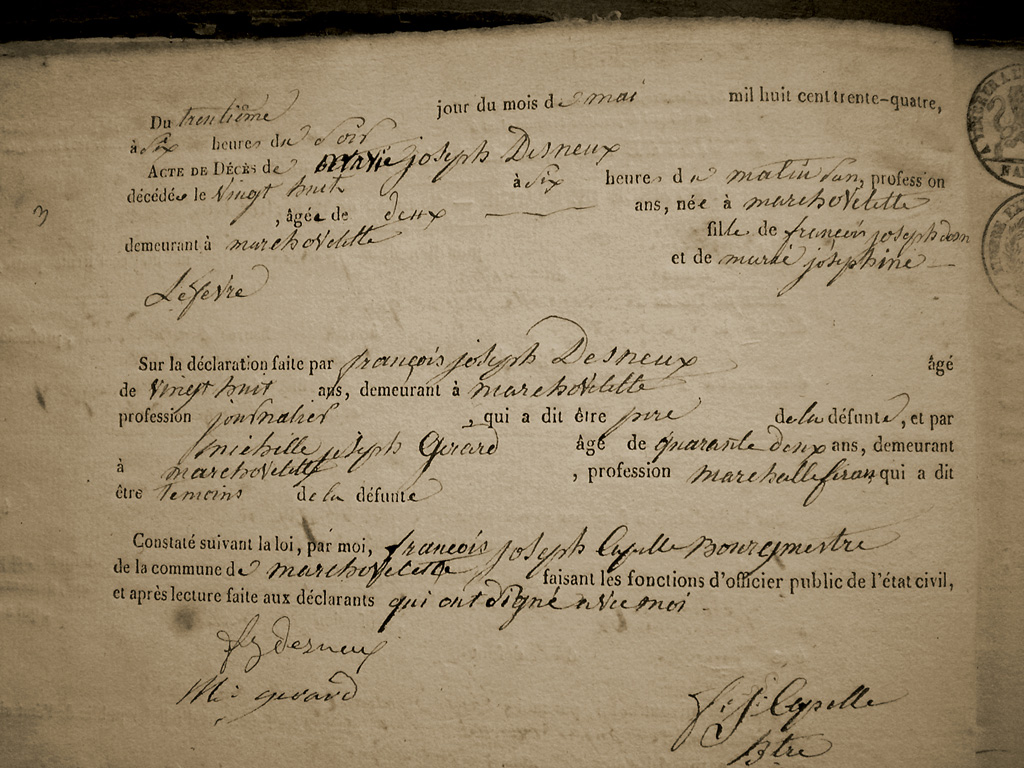 3
Du trentième jour du mois de mai mil huit cent trente-quatre,
à Six heures du Soir
ACTE DE DÉCÈS de joseph Desneux
décédée le vingt huit à Six heures du matin San, profession
, âgée de deux ans, née à marchovelette
demeurant à marchovelette fille de françois joseph desn
et de marie joséphine
Lefevre
Sur la déclaration faite par françois joseph Desneux âgé
de vingt huit ans, demeurant à marchovelette
profession journalier, qui a dit être pere de la défunte, et par
michelle joseph Gerard âgé de quarante deux ans, demeurant
à marchovelette, profession marchalleferan qui a dit
être temoins de la défunte
Constaté suivant la loi, par moi, françois joseph Capelle Bourgmestre
de la commune de marchovelette faisant les fonctions d'officier public de l'état civil,
et après lecture faite aux déclarants qui ont signé avec moi
desneux
M: gerard
f: j: Capelle
Btre